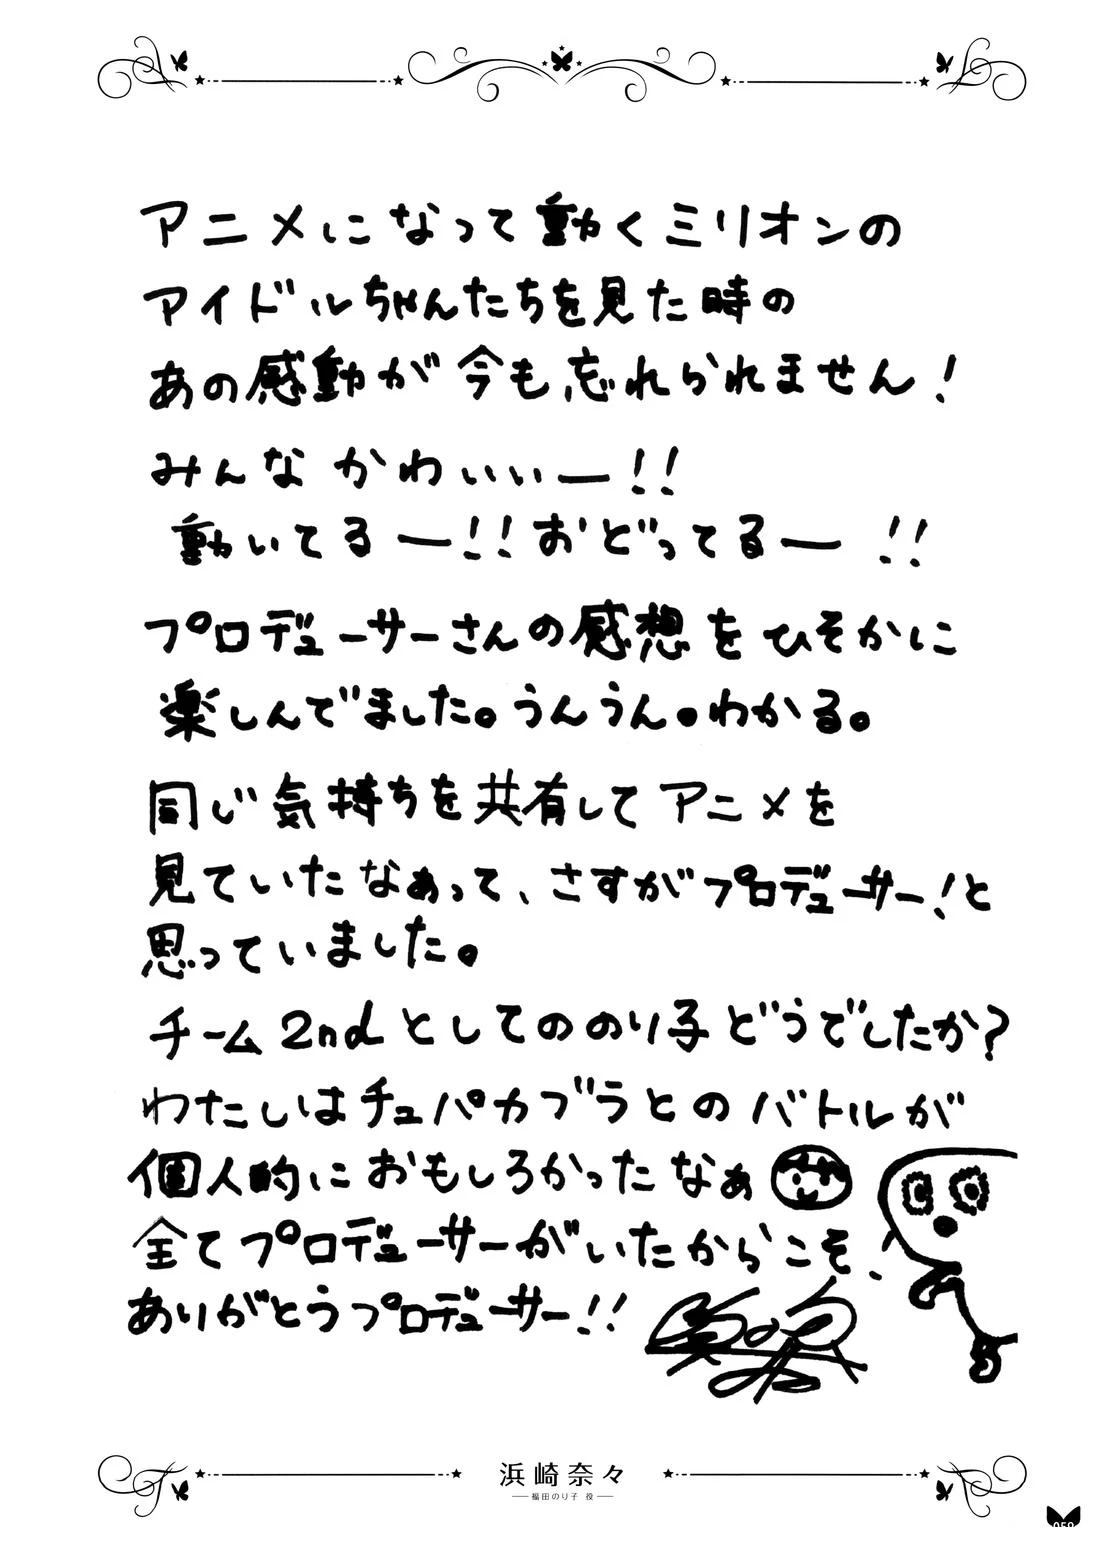 アニメになって動くミリオンの
アイドルちゃんたちを見た時の
あの感動が今も忘れられません！
みんなかわいいー!!
動いてるー!!おどってるー!!
プロデューサーさんの感想をひそかに
楽しんでました。うんうん。わかる。
同じ気持ちを共有してアニメを
見ていたなぁって、さすがプロデューサー！と
思っていました。
チーム2ndとしてののり子どうでしたか？
わたしはチュパカブラとのバトルが
個人的におもしろかったなぁ
全てプロデューサーがいたからこそ、
ありがとうプロデューサー!!
浜崎奈々
福田のり子 役